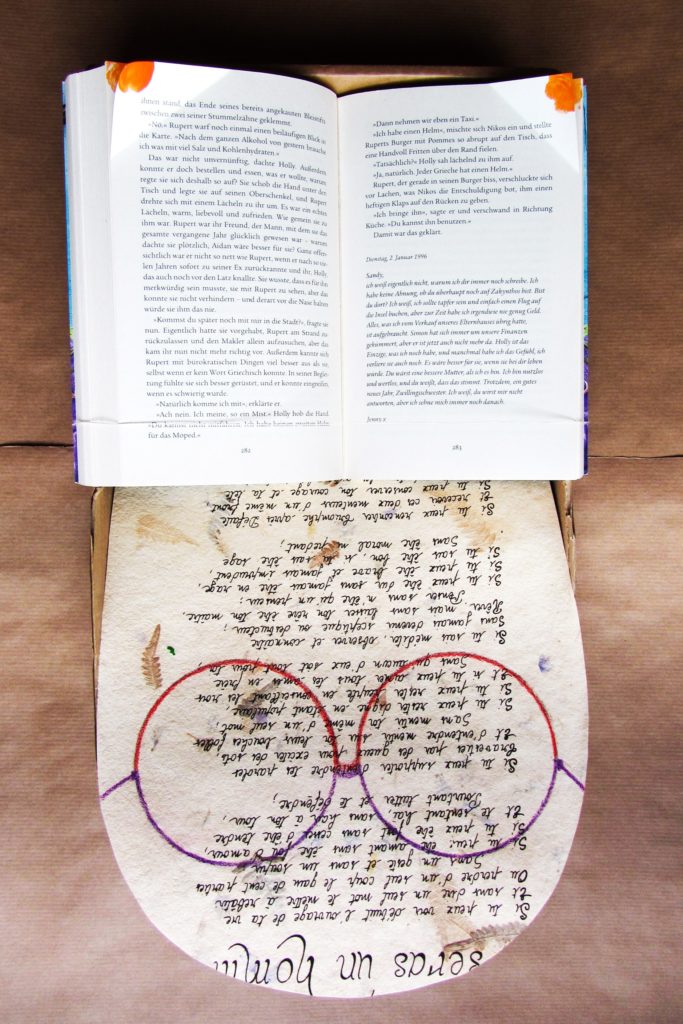 ihnen stand, das Ende seines bereits angekauten Bleistifts
zwischen zwei seiner Stummelzähne geklemmt.
»No.« Rupert warf noch einmal einen beiläufigen Blick in
die Karte. »Nach dem ganzen Alkohol von gestern brauche
ich was mit viel Salz und Kohlenhydraten.«
Das war nicht unvernünftig, dachte Holly. Außerdem
konnte er doch bestellen und essen, was er wollte, warum
regte sie sich deshalb so auf? Sie schob die Hand unter den
Tisch und legte sie auf seinen Oberschenkel, und Rupert
drehte sich mit einem Lächeln zu ihr um. Es war ein echtes
Lächeln, warm, liebevoll und zufrieden. Wie gemein sie zu
ihm war. Rupert war ihr Freund, der Mann, mit dem sie das
gesamte vergangene Jahr glücklich gewesen war – warum
dachte sie plötzlich, Aidan wäre besser für sie? Ganz offen-
sichtlich war er nicht so nett wie Rupert, wenn er nach so vie-
len Jahren sofort zu seiner Ex zurückrannte und ihr, Holly,
das auch noch vor den Latz knallte. Sie wusste, dass es für ihn
merkwürdig sein musste, sie mit Rupert zu sehen, aber das
konnte sie nicht verhindern – und derart vor die Nase halten
würde sie ihm das nie.
»Kommst du später noch mit nur in die Stadt?«, fragte sie
nun. Eigentlich hatte sie vorgehabt, Rupert am Strand zu
rückzulassen und den Makler allein aufzusuchen, aber das
kam ihr nun nicht mehr richtig vor. Außerdem kannte sich
Rupert mit bürokratischen Dingen viel besser aus als sie,
selbst wenn er kein Wort Griechisch konnte. In seiner Beglei-
tung fühlte sie sich besser gerüstet, und er konnte eingreifen,
wenn es schwierig wurde.
»Natürlich komme ich mit«, erklärte er.
»Ach nein. Ich meine, so ein Mist.« Holly hob die Hand.
»Du kannst nicht mitfahren. Ich habe keinen zweiten Helm
für das Moped.«
282
»Dann nehmen wir eben ein Taxi.«
»Ich habe einen Helm«, mischte sich Nikos ein und stellte
Ruperts Burger mit Pommes so abrupt auf den Tisch, dass
eine Handvoll Fritten über den Rand fielen.
»Tatsächlich?« Holly sah lächelnd zu ihm auf.
»Ja, natürlich. Jeder Grieche hat einen Helm.«
Rupert, der gerade in seinen Burger biss, verschluckte sich
vor Lachen, was Nikos die Entschuldigung bot, ihm einen
heftigen Klaps auf den Rücken zu geben.
»Ich bringe ihn«, sagte er und verschwand in Richtung
Küche. »Du kannst ihn benutzen.«
Damit war das geklärt.
Dienstag, 2. Januar 1996
Sandy,
ich weiß eigentlich nicht, warum ich dir immer noch schreibe. Ich
habe keine Ahnung, ob du überhaupt noch auf Zakynthos bist. Bist
du dort? Ich weiß, ich sollte tapfer sein und einfach einen Flug auf
die Insel buchen, aber zur Zeit habe ich irgendwie nie genug Geld.
Alles, was ich vom Verkauf unseres Elternhauses übrig hatte,
ist aufgebraucht. Simon hat sich immer um unsere Finanzen
gekümmert, aber er ist jetzt auch nicht mehr da. Holly ist das
Einzige, was ich noch habe, und manchmal habe ich das Gefühl, ich
verliere sie auch noch. Es wäre besser für sie, wenn sie bei dir leben
würde. Du wärst eine bessere Mutter, als ich es bin. Ich bin nutzlos
und wertlos, und du weißt, dass das stimmt. Trotzdem, ein gutes
neues Jahr, Zwillingsschwester. Ich weiß, du wirst mir nicht
antworten, aber ich sehne mich immer noch danach.
Jenny x
283
seras un homm
Si tu peux voir détruit l'ouvrage de ta vie
Et sans dire un seul mot te mettre à rebatir,
Ou perdre d'un seul coup le gain de cent parties
Sans un geste et sans un soupir
Si tu peux être amant sans être fou d'amour,
Si tu peux être fort sans cesser d'être tendre
Et te sentant haï, sans haïr à ton tour,
Pourtant lutter et te défendre;
Si tu peux supporter d'entendre tes paroles
Travesties par des gueux pour exciter des sots
Et d'entendre mentir sur toi leur bouches folles
Sans mentir toi même d'un seul mot,
Si tu peux rester digne en étant populaire
Si tu peux rester peuple en conseillant les rois
Et si tu peux aimer tous tes amis en frère
Sans qu'aucun d'eux soit tout pour toi;
Si tu sais méditer, observer et connaitre
Sans jamais devenir sceptique ou destructeur;
Rêver, mais sans laisser ton rêve être ton maitre,
Penser sans n'être qu'un penseur;
Si tu peux être dur sans jamais être en rage,
Si tu peux être brave et jamais imprudent,
Si tu sais être bon, si tu sais être sage
Sans être moral ni pedant;
Si tu peux rencontrer Triomphe apres Défaite
Et recevoir ces deux menteurs d'un même front,
Si tu peux conserver ton courage et ta tête